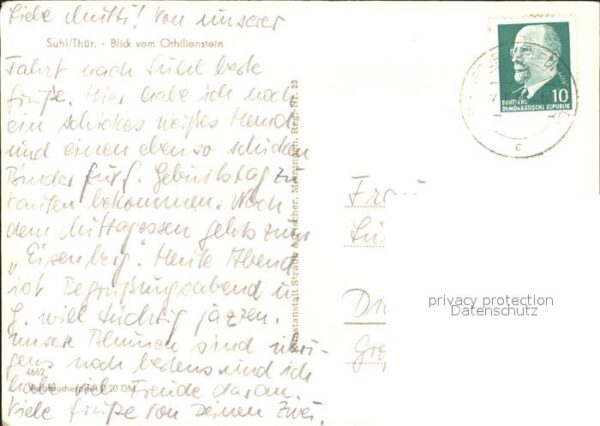 Liebe Mutti! Von unserer
Suhl/Thür. - Blick vom Othilienstein
Fahrt nach Suhl beste
Grüße. Hier habe ich noch
ein schickes weißes Hemd
und einen ebenso schicken
Binder für G. Geburtstag zu
kaufen bekommen. Nach
dem Mittagessen gehts zum
"Eisenberg". Heute Abend
ist Begrüßungsabend u.
G. will tüchtig jazzen.
Unsere Blumen sind übri-
gens noch bestens und ich
4662
habe viel Freude daran.
Verbraucherpreis 0.20 DM
Viele Grüße von Deinen Zwei.
Kunstanstalt Straub & Fischer, Meiningen, Reg.-Nr. 23
10
DEUTSCHE
DEMOKRATISCHE REPUBLIK
c
Fra
Dr
privacy protection
Datenschutz